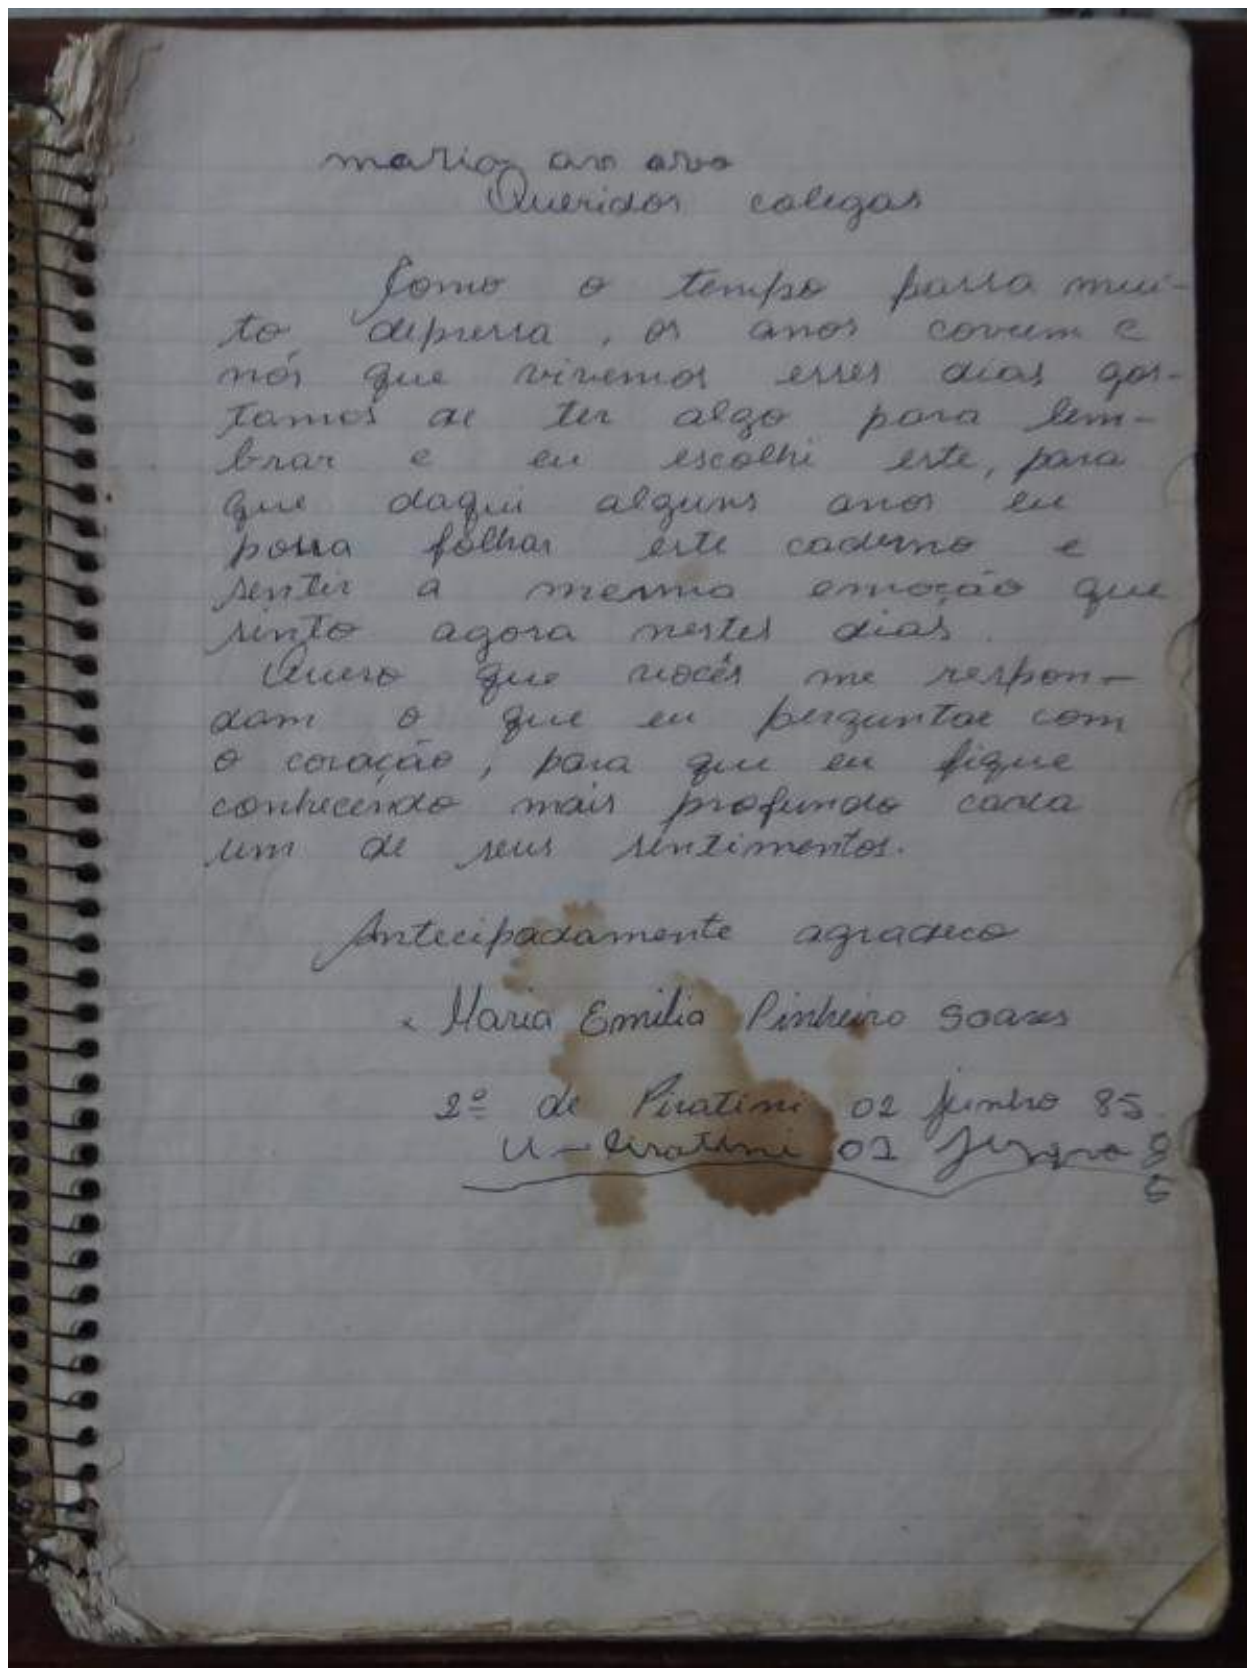 maria
Queridos colegas
Como o tempo passa mui-
to depressa, os anos correm e
nós que vivemos esses dias gos-
tamos de ter algo para lem-
brar e eu escolhi este, para
que daqui alguns anos eu
possa folhar este caderno e
sentir a mesma emoção que
sinto agora nestes dias.
Quero que vocês me respon-
dam o que eu perguntar com
o coração, para que eu fique
conhecendo mais profundo cada
um de seus sentimentos.
Antecipadamente agradeco
Maria Emilia Pinheiro Soares
2º de Piratini 02 junho 85
02